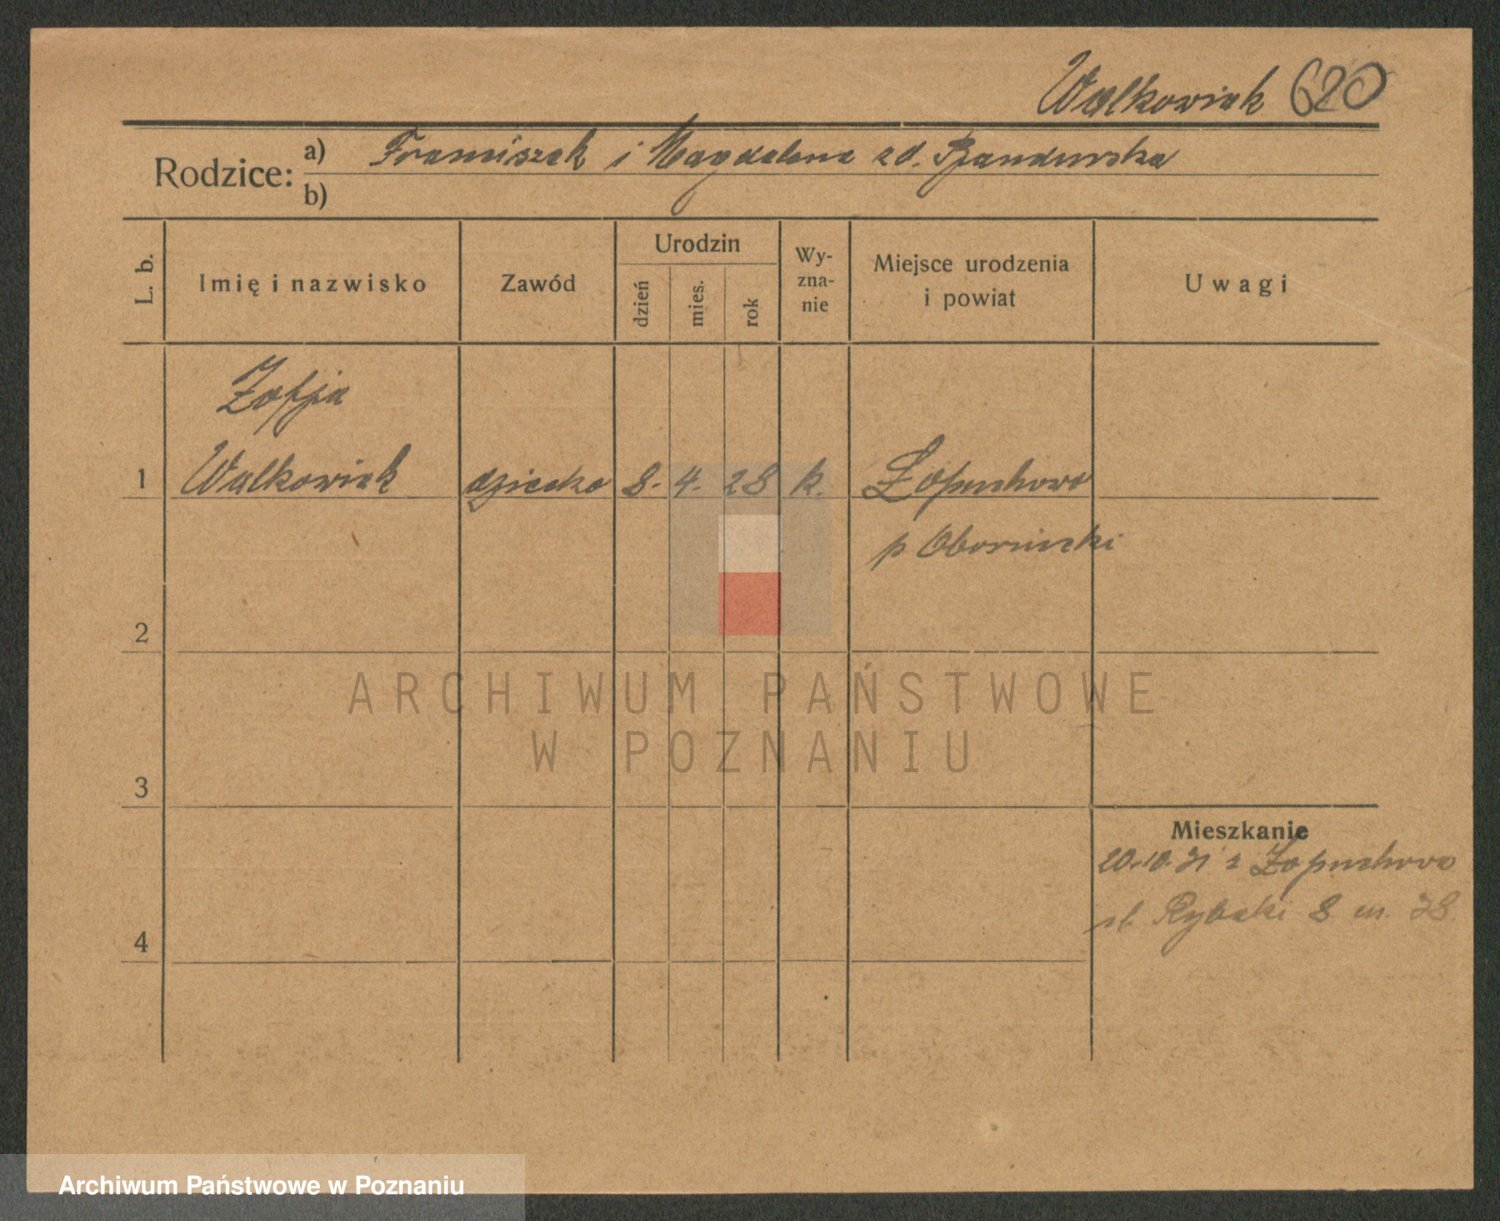 Walkowiak 620
Rodzice: a) Franciszek i Magdalena zd.
b)
L. b.
Imię i nazwisko
Zawód
Urodzin
dzień
mies.
rok
Wy-
zna-
nie
Miejsce urodzenia
i powiat
Uwagi
Zofja
1 Walkowiak dziecko 8. 4. 28 k. Łopuchowo
p Obornicki
2
ARCHIWUM PAŃSTWOWE
W POZNANIU
3
Mieszkanie
20.10.31 z Łopuchowo
Rybaki 8 m. 38
4
Archiwum Państwowe w Poznaniu